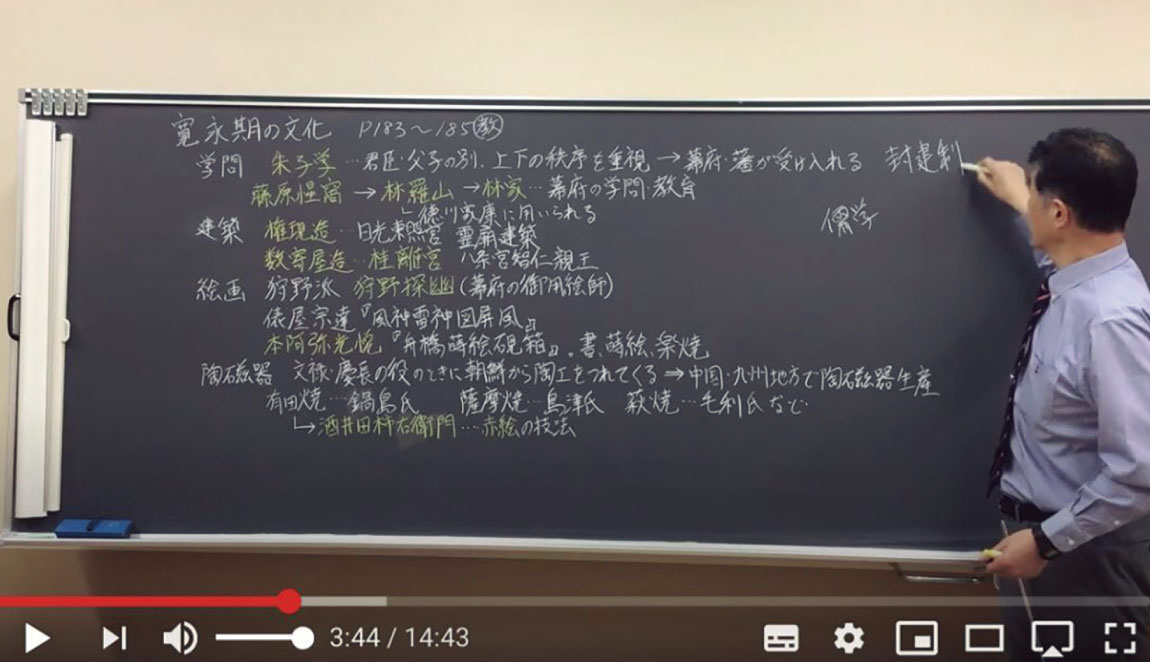 寛永期の文化 P183～185教
学問 朱子学…君臣・父子の別、上下の秩序を重視→幕府・藩が受け入れる 封建制
藤原惺窩→林羅山→林家…幕府の学問・教育
└徳川家康に用いられる
儒学
建築 権現造…日光東照宮 霊廟建築
数寄屋造…桂離宮 八条宮智仁親王
絵画 狩野派 狩野探幽(幕府の御用絵師)
俵屋宗達『風神雷神図屏風』
本阿弥光悦『舟橋蒔絵硯箱』。書、蒔絵、楽焼
陶磁器 文禄・慶長の役のときに朝鮮から陶工をつれてくる⇒中国・九州地方で陶磁器生産
有田焼…鍋島氏 薩摩焼…島津氏 萩焼…毛利氏など
└→酒井田柿右衛門…赤絵の技法
3:44 / 14:43